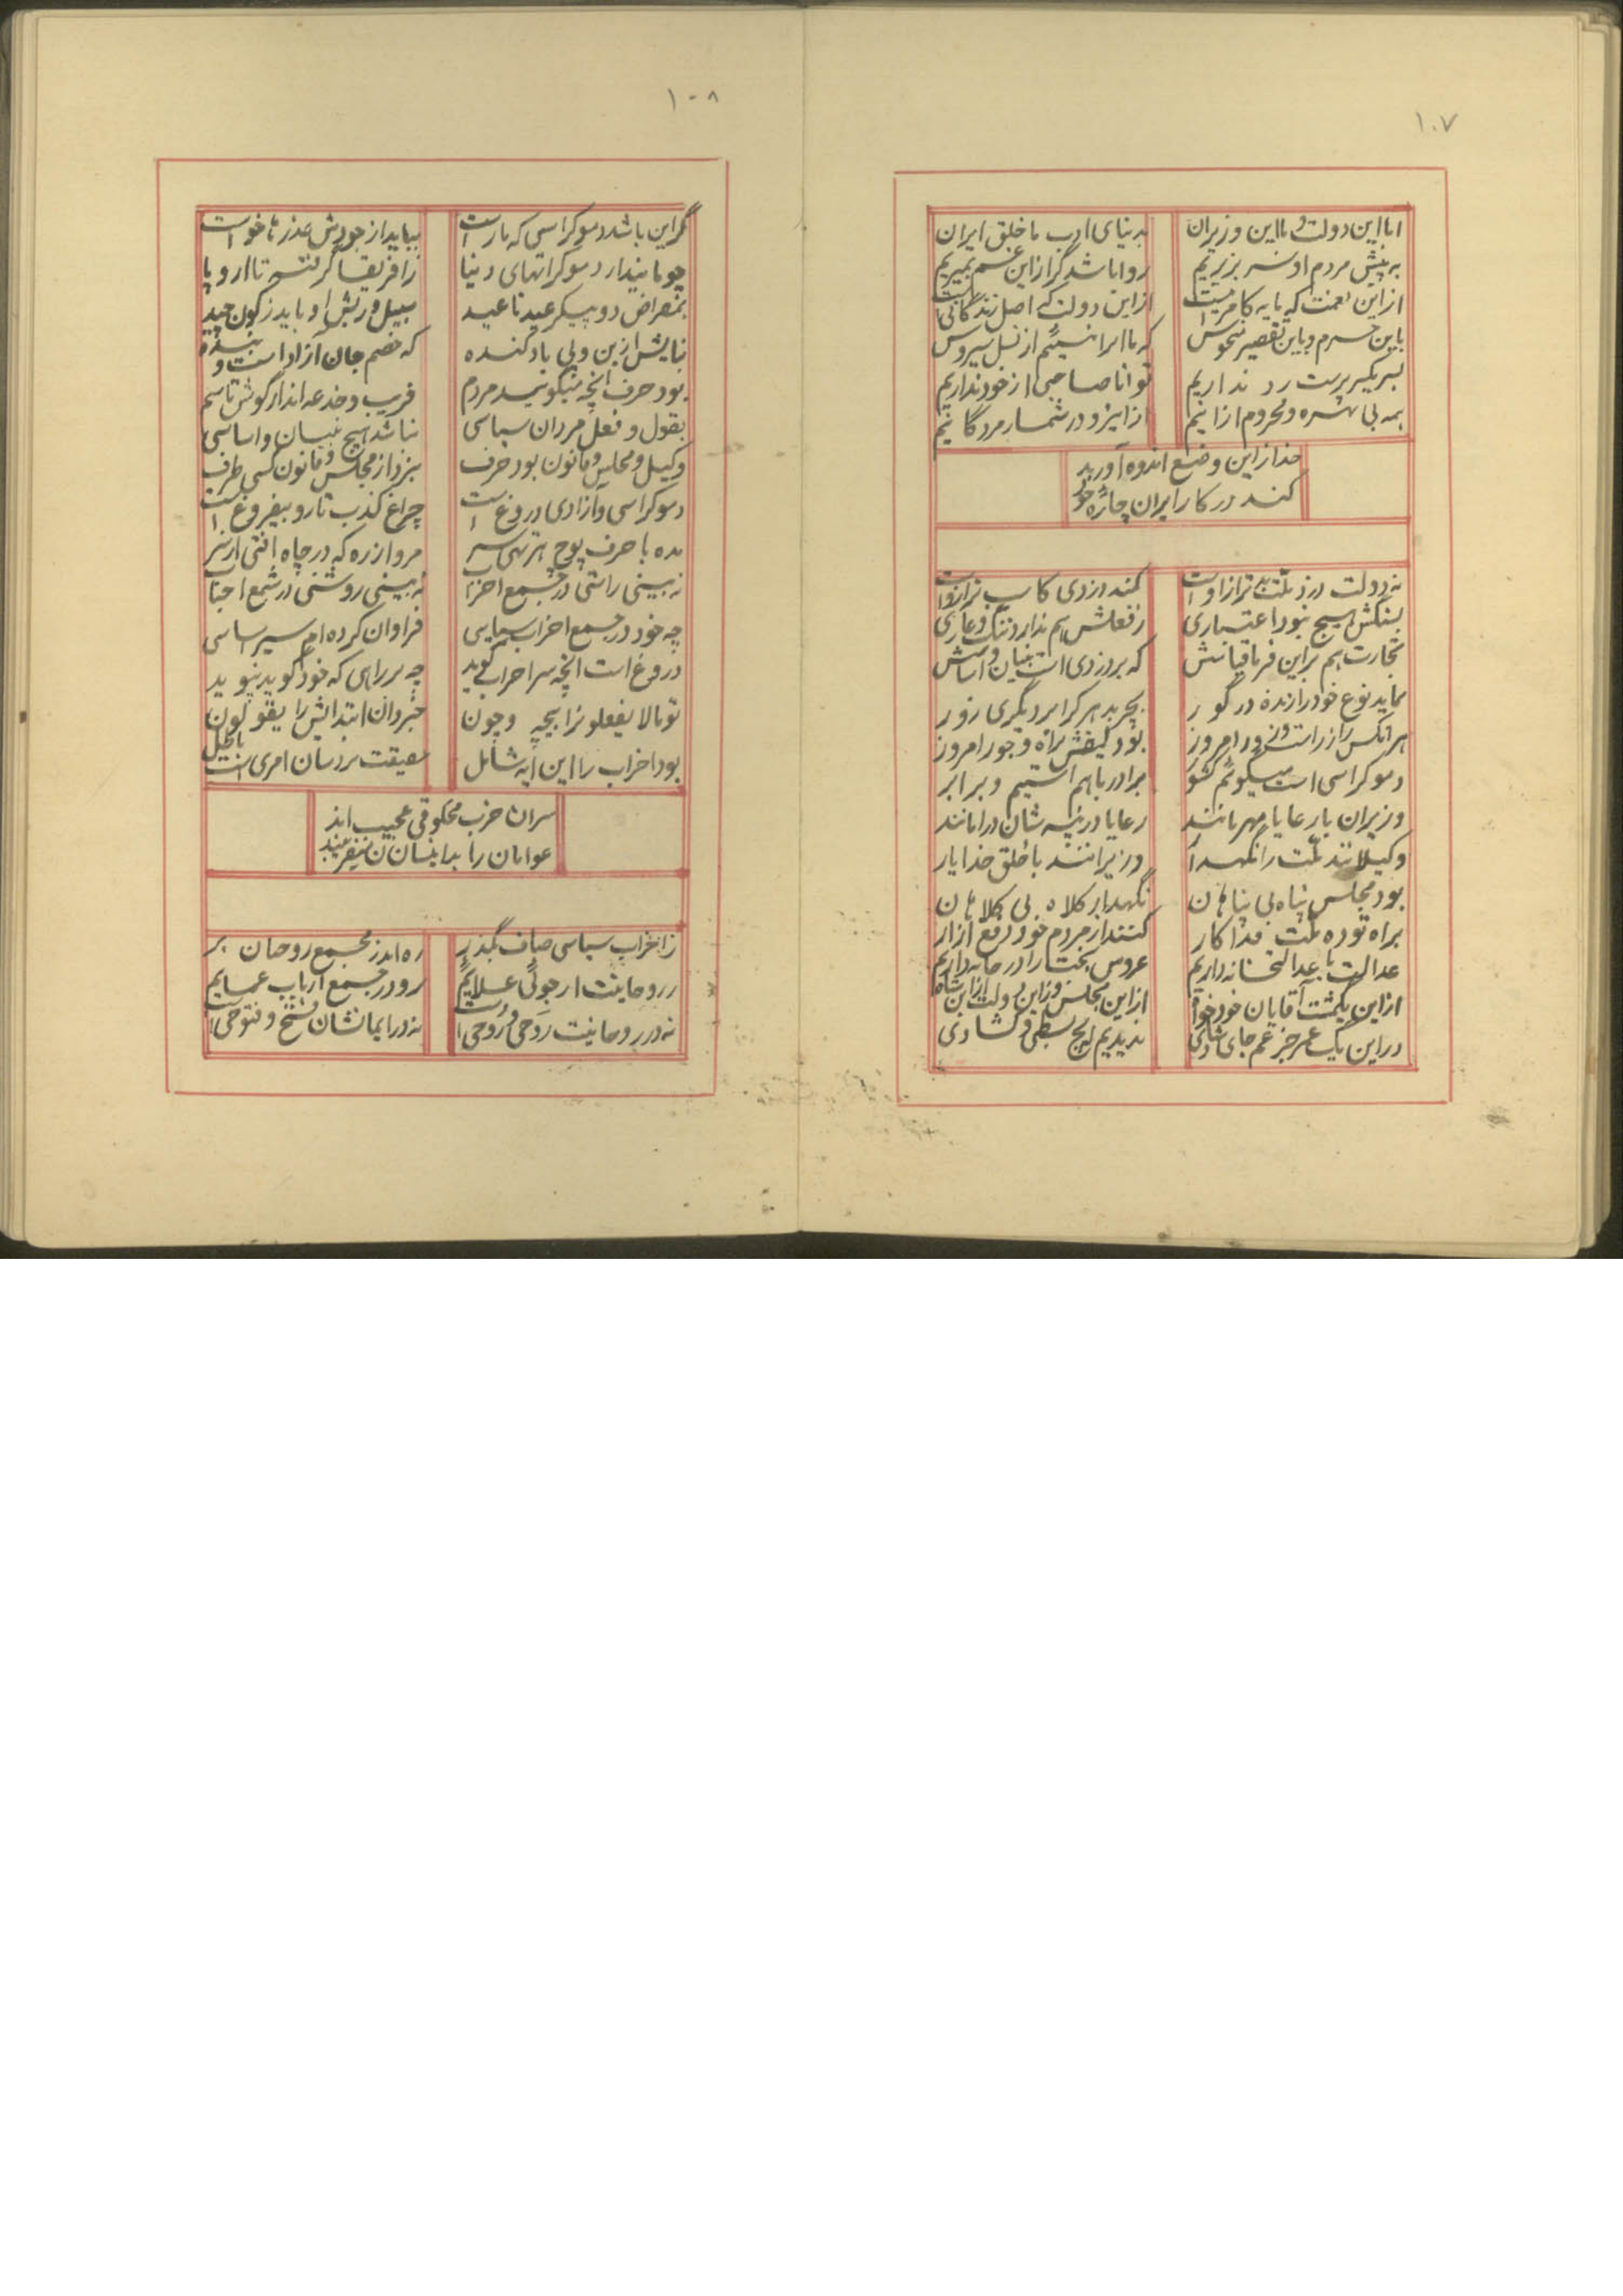 ۱۰۷
ابا این دولت و با این وزیران
بدنیای ادب ما خلق ایران
به پیش مردم او سر بزیریم
روا باشد گر از این غم بمیریم
از این نعمت که پایه کامرانیست
از این دولت که اصل زندگانی است
باین جرم و باین تقصیر منحوس
که ما ایرانییم از نسل سیروس
سر یکسر پرست رد نداریم
توانا صاحبی از خود نداریم
همه بی بهره و محروم از آنیم
از اینرو در شمار مردگانیم
خدا از این وضع اندوه آور بد
کند در کار ایران چاره خود
نه دولت درد ملت بدتر از اوست
کمند دزدی کاسب ترازوست
بسنگش هیچ نبود اعتباری
ز فعلش هم ندارد ننگ و عاری
تجارت هم بر این فرما قیاسش
که بر دزدی است بنیان و اساسش
نماید نوع خود را زنده در گور
بچربد هر کرا بر دیگری زور
هر آنکس را زر است و زور امروز
بود کیفش براه و جور امروز
دموکراسی است میگوئم کشور
برادر با هم استیم و برابر
وزیران با رعایا مهربانند
رعایا در پیشان در امانند
وکیلانند ملت را نگهدار
وزیرانند با خلق خدا یار
بود مجلس پناه بی پناهان
نگهدار کلاه بی کلاهان
براه توده ملت فداکار
کنند از مردم خود دفع آزار
عدالت با عدالتخانه داریم
عروس بخت را در خانه داریم
از این یکمشت آقایان خودخواه
از این مجلس و زین دولت از این شاه
در این یک عمر جز غم جای شادی
ندیدیم هیچ بسطی و گشادی
۱۰۸
گر این باشد دموکراسی که ما راست
بباید از جوردش عذرها خواست
چو ما بیندار دموکراتهای دنیا
ز افریقا گرفته تا اروپا
بمقراض دو پیکر عید تا عید
سبیل و ریش او باید ز کون چید
نیایش از بن و پی باد کنده
که خصم جان آزاد است و بنده
بود حرف آنچه میگویند مردم
فریب و خدعه اندر گوش تا سم
بقول و فعل مردان سیاسی
نباشد هیچ بنیان و اساسی
وکیل و مجلس و قانون بود حرف
نبرد از مجلس و قانون کسی طرف
دموکراسی و آزادی دروغ است
چراغ کذب تار و بیفروغ است
مده با حرف پوچ هر تهی سر
مرو از ره که در چاه افتی از سر
نه بینی راستی در جمع احزاب
نه بینی روشنی در شمع اجناب
چه خود در جمع احزاب سیاسی
فراوان کرده ام سیر اساسی
دروغ است آنچه سر احزاب گوید
چه بر راهی که خود گوید نپوید
تو مالا یفعلونرا بیچه و چون
خبر دان ابتدایش را یقولون
بود احزاب را این آیه شامل
حقیقت نزدشان امری است باطل
سران حزب مخلوقی عجیب اند
عوامان را بداینسان میفریبند
ز احزاب سیاسی صاف بگذر
ره اندر مجمع روحانیان بر
ز روحانیت ار جوئی علایم
رو در جمع ارباب عمایم
نه در روحانیت روحی و روحی است
نه در ایمانشان فتح و فتوحی است